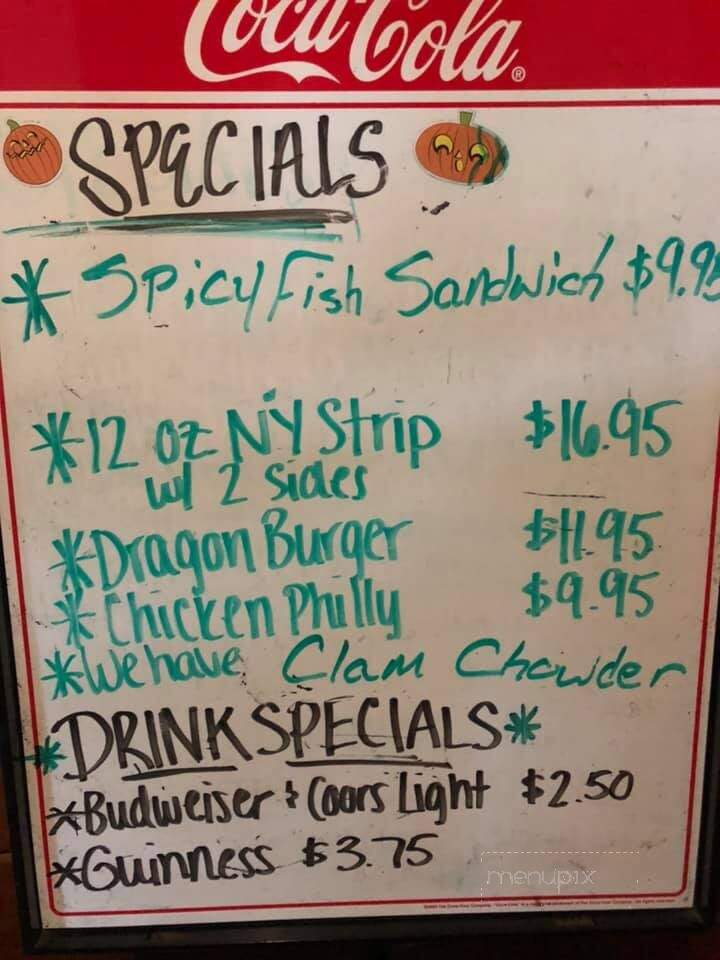 Coca-Cola®
SPECIALS
* Spicy Fish Sandwich $9.95
*12 oz NY Strip $16.95
w/ 2 sides
*Dragon Burger $11.95
*Chicken Philly $9.95
*We have Clam Chowder
*DRINK SPECIALS*
*Budweiser & Coors Light $2.50
*Guinness $3.75
menupix